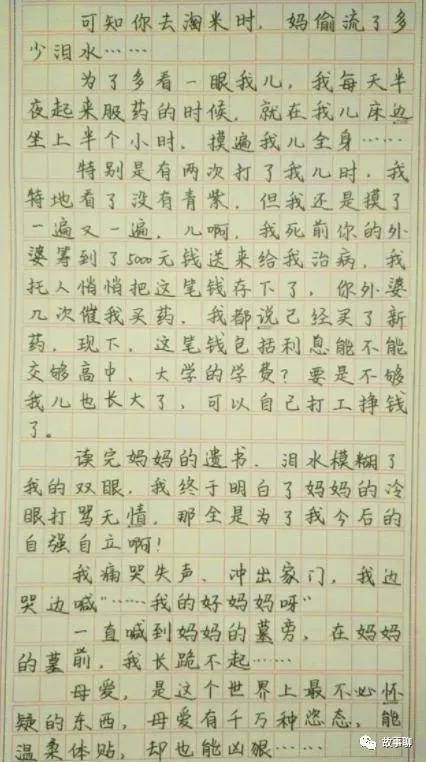 可知你去淘米时，妈偷流了多
少泪水……
为了多看一眼我儿，我每天半
夜起来服药的时候，就在我儿床边
坐上半个小时，摸遍我儿全身……
特别是有两次打了我儿时，我
特地看了没有青紫，但我还是摸了
一遍又一遍，儿啊，我死前你的外
婆筹到了5000元钱送来给我治病，我
托人悄悄把这笔钱存下了，你外婆
几次催我买药，我都说已经买了新
药，现下，这笔钱包括利息能不能
交够高中、大学的学费？要是不够
我儿也长大了，可以自己打工挣钱
了。
读完妈妈的遗书，泪水模糊了
我的双眼，我终于明白了妈妈的冷
眼打骂无情，那全是为了我今后的
自强自立啊！
我痛哭失声，冲出家门，我边
哭边喊“……我的好妈妈呀”
一直喊到妈妈的墓旁，在妈妈
的墓前，我长跪不起……
母爱，是这个世界上最不必怀
疑的东西，母爱有千万种恣态，能
温柔体贴，却也能凶狠……
故事聊